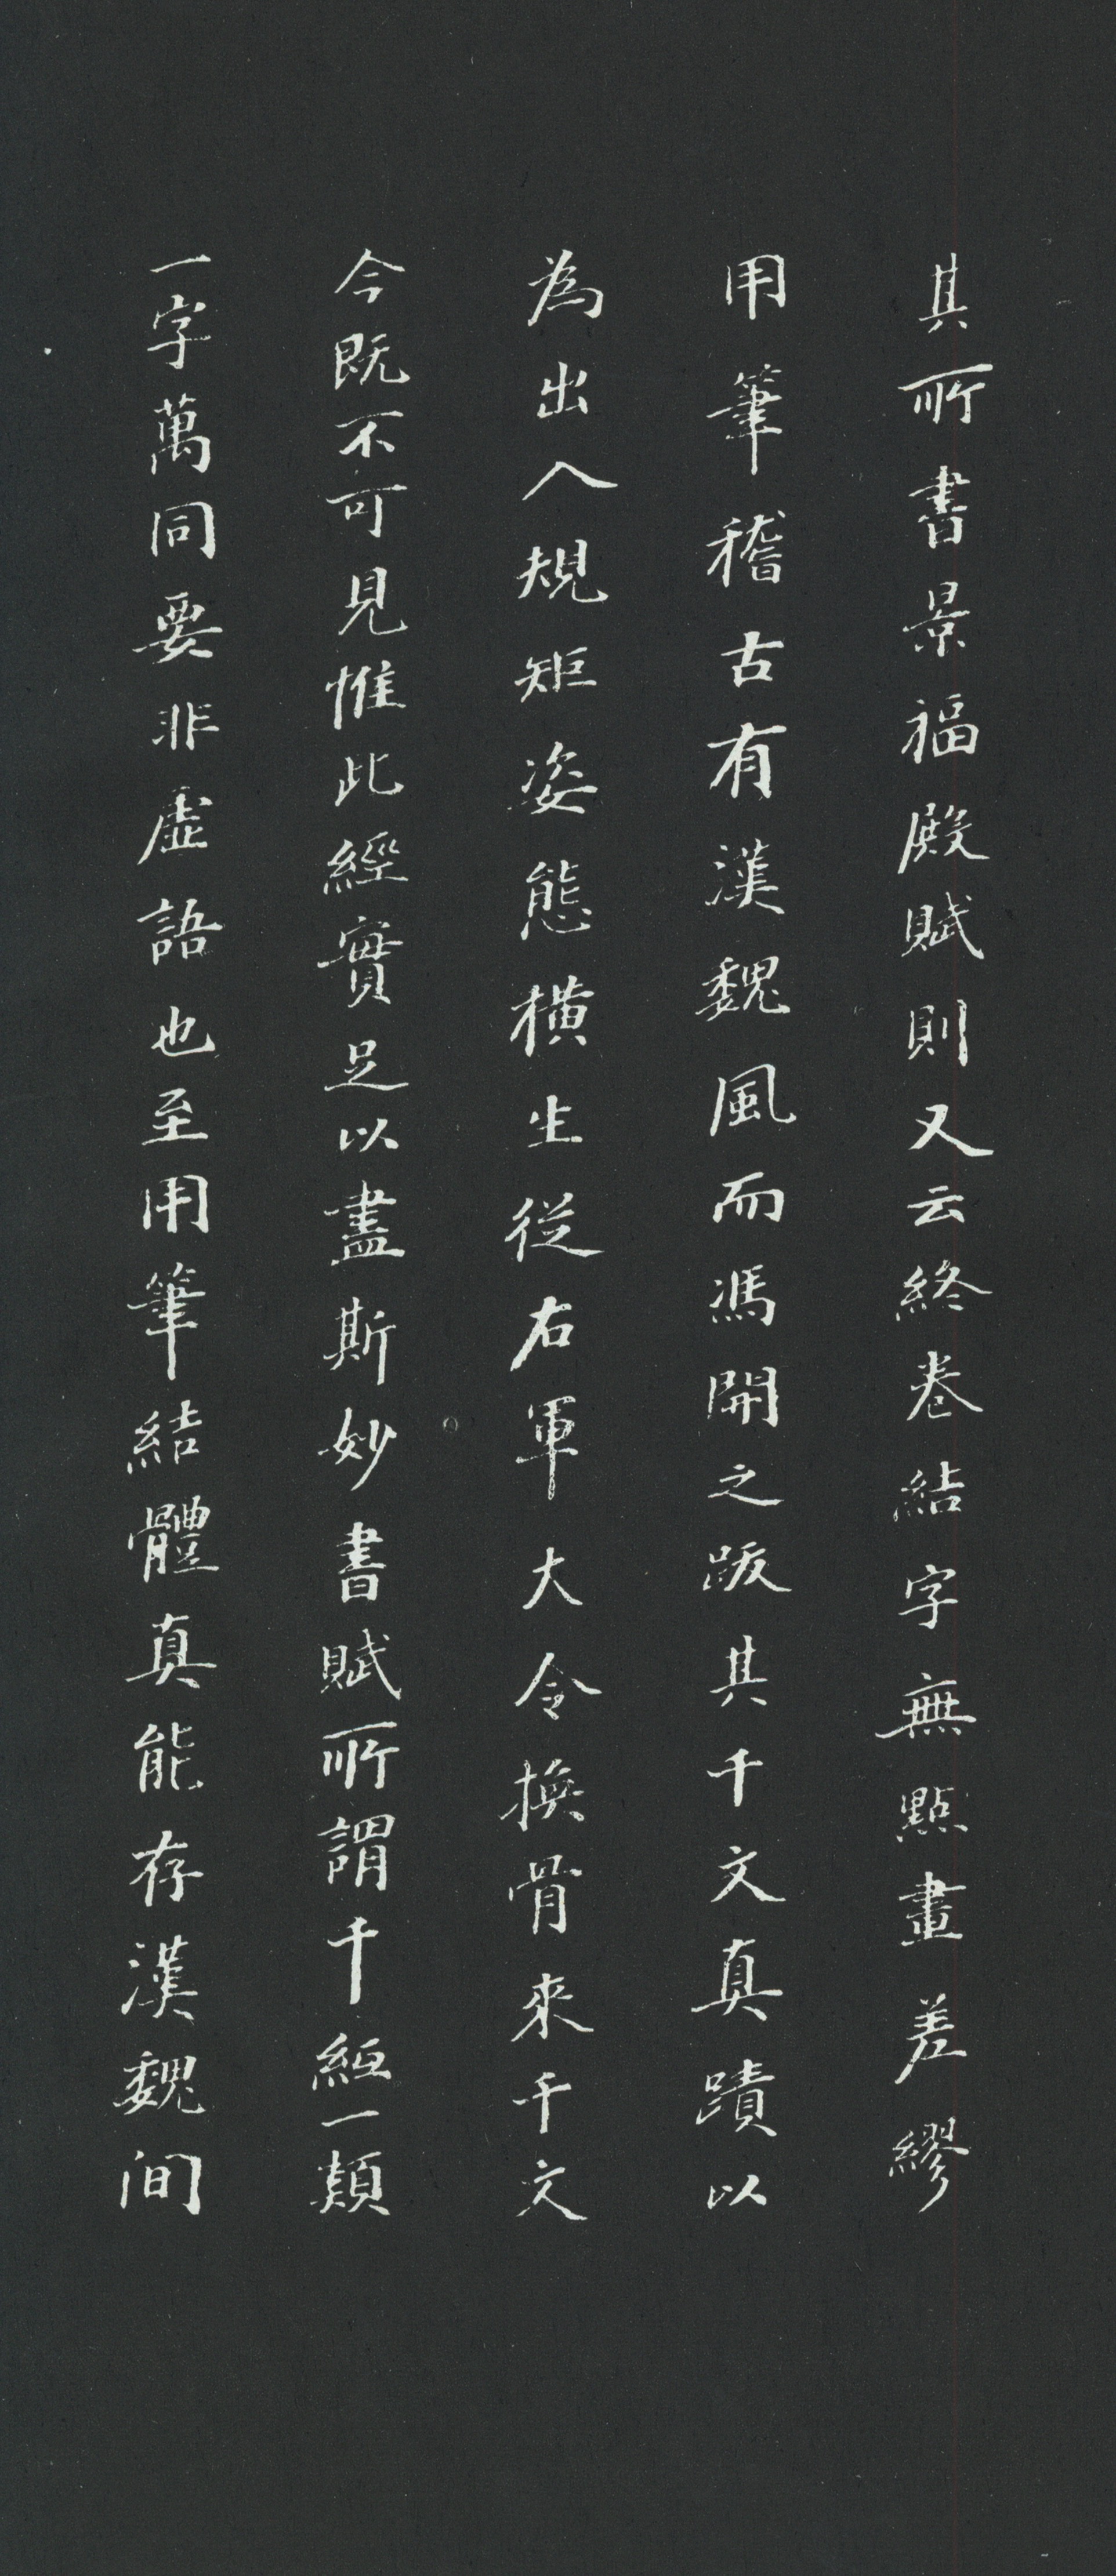 其所書景福殿賦則又云終卷結字無點畫差繆
用筆稽古有漢魏風而馮開之跋其千文真蹟以
為出入規矩姿態橫生從右軍大令換骨來千文
今既不可見惟此經實足以盡斯妙書賦所謂千紙一類
一字萬同要非虛語也至用筆結體真能存漢魏間